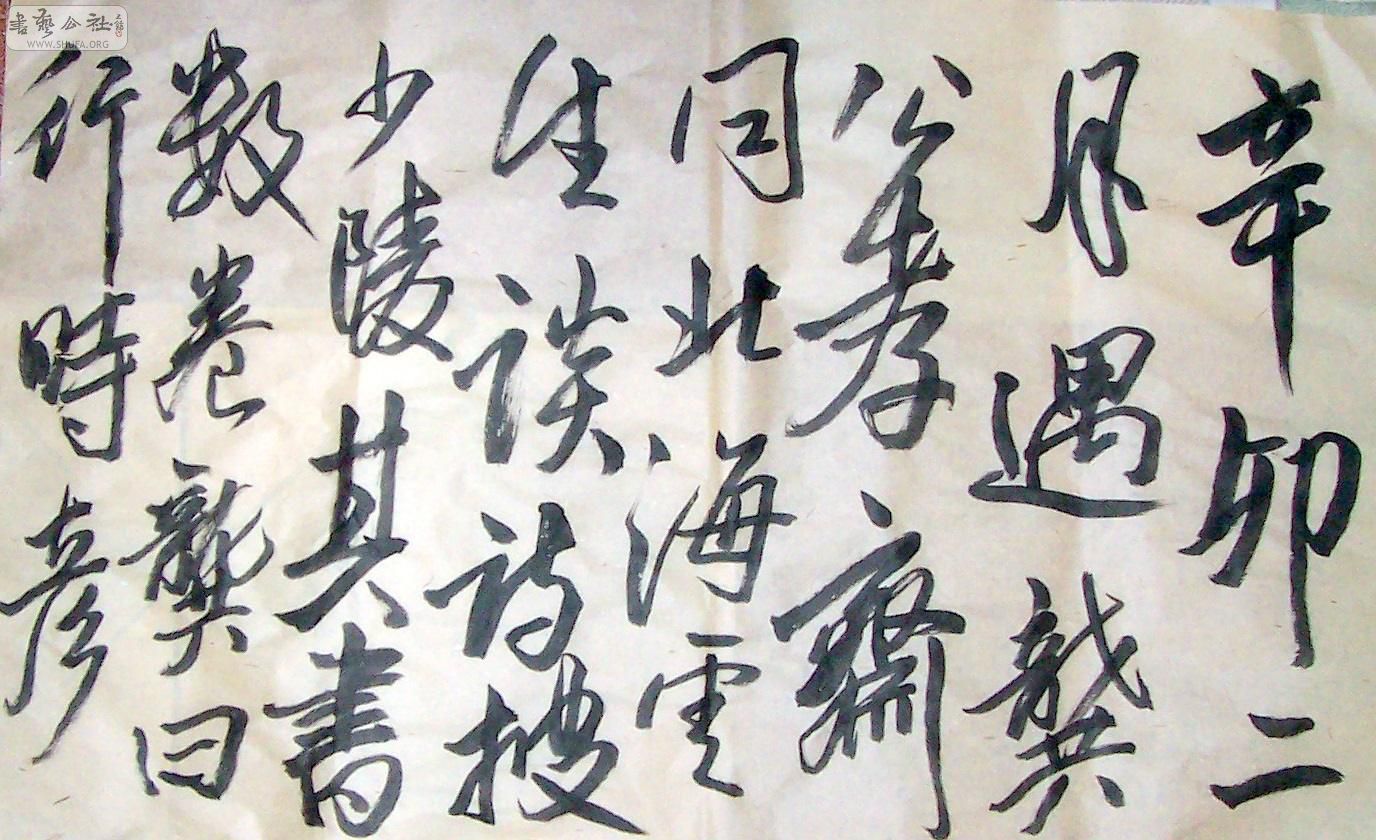 辛卯二
月遇龔
公孝齋
同北海雲
生談詩搜
少陵其書
數卷龔曰
行時彥
書藝公社
WWW.SHUFA.ORG